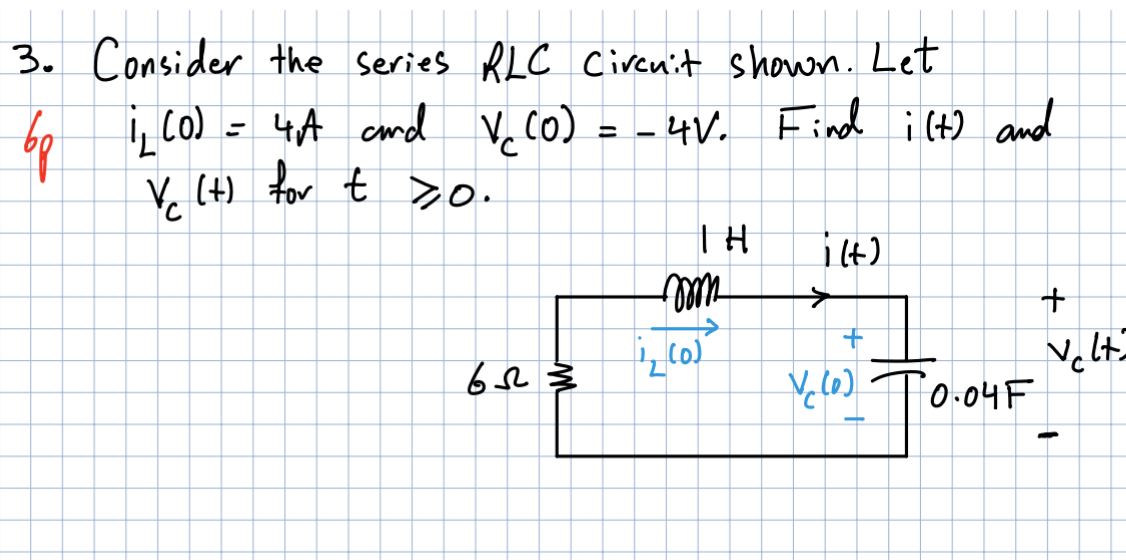 3. Consider the series RLC circuit shown. Let
6p
i_L(0) = 4A and V_c(0) = -4V. Find i(t) and
V_c(t) for t ≥ 0.
1 H
i(t)
i_L(0)
+
V_c(0)
-
6Ω
0.04F
+
V_c(t)
-